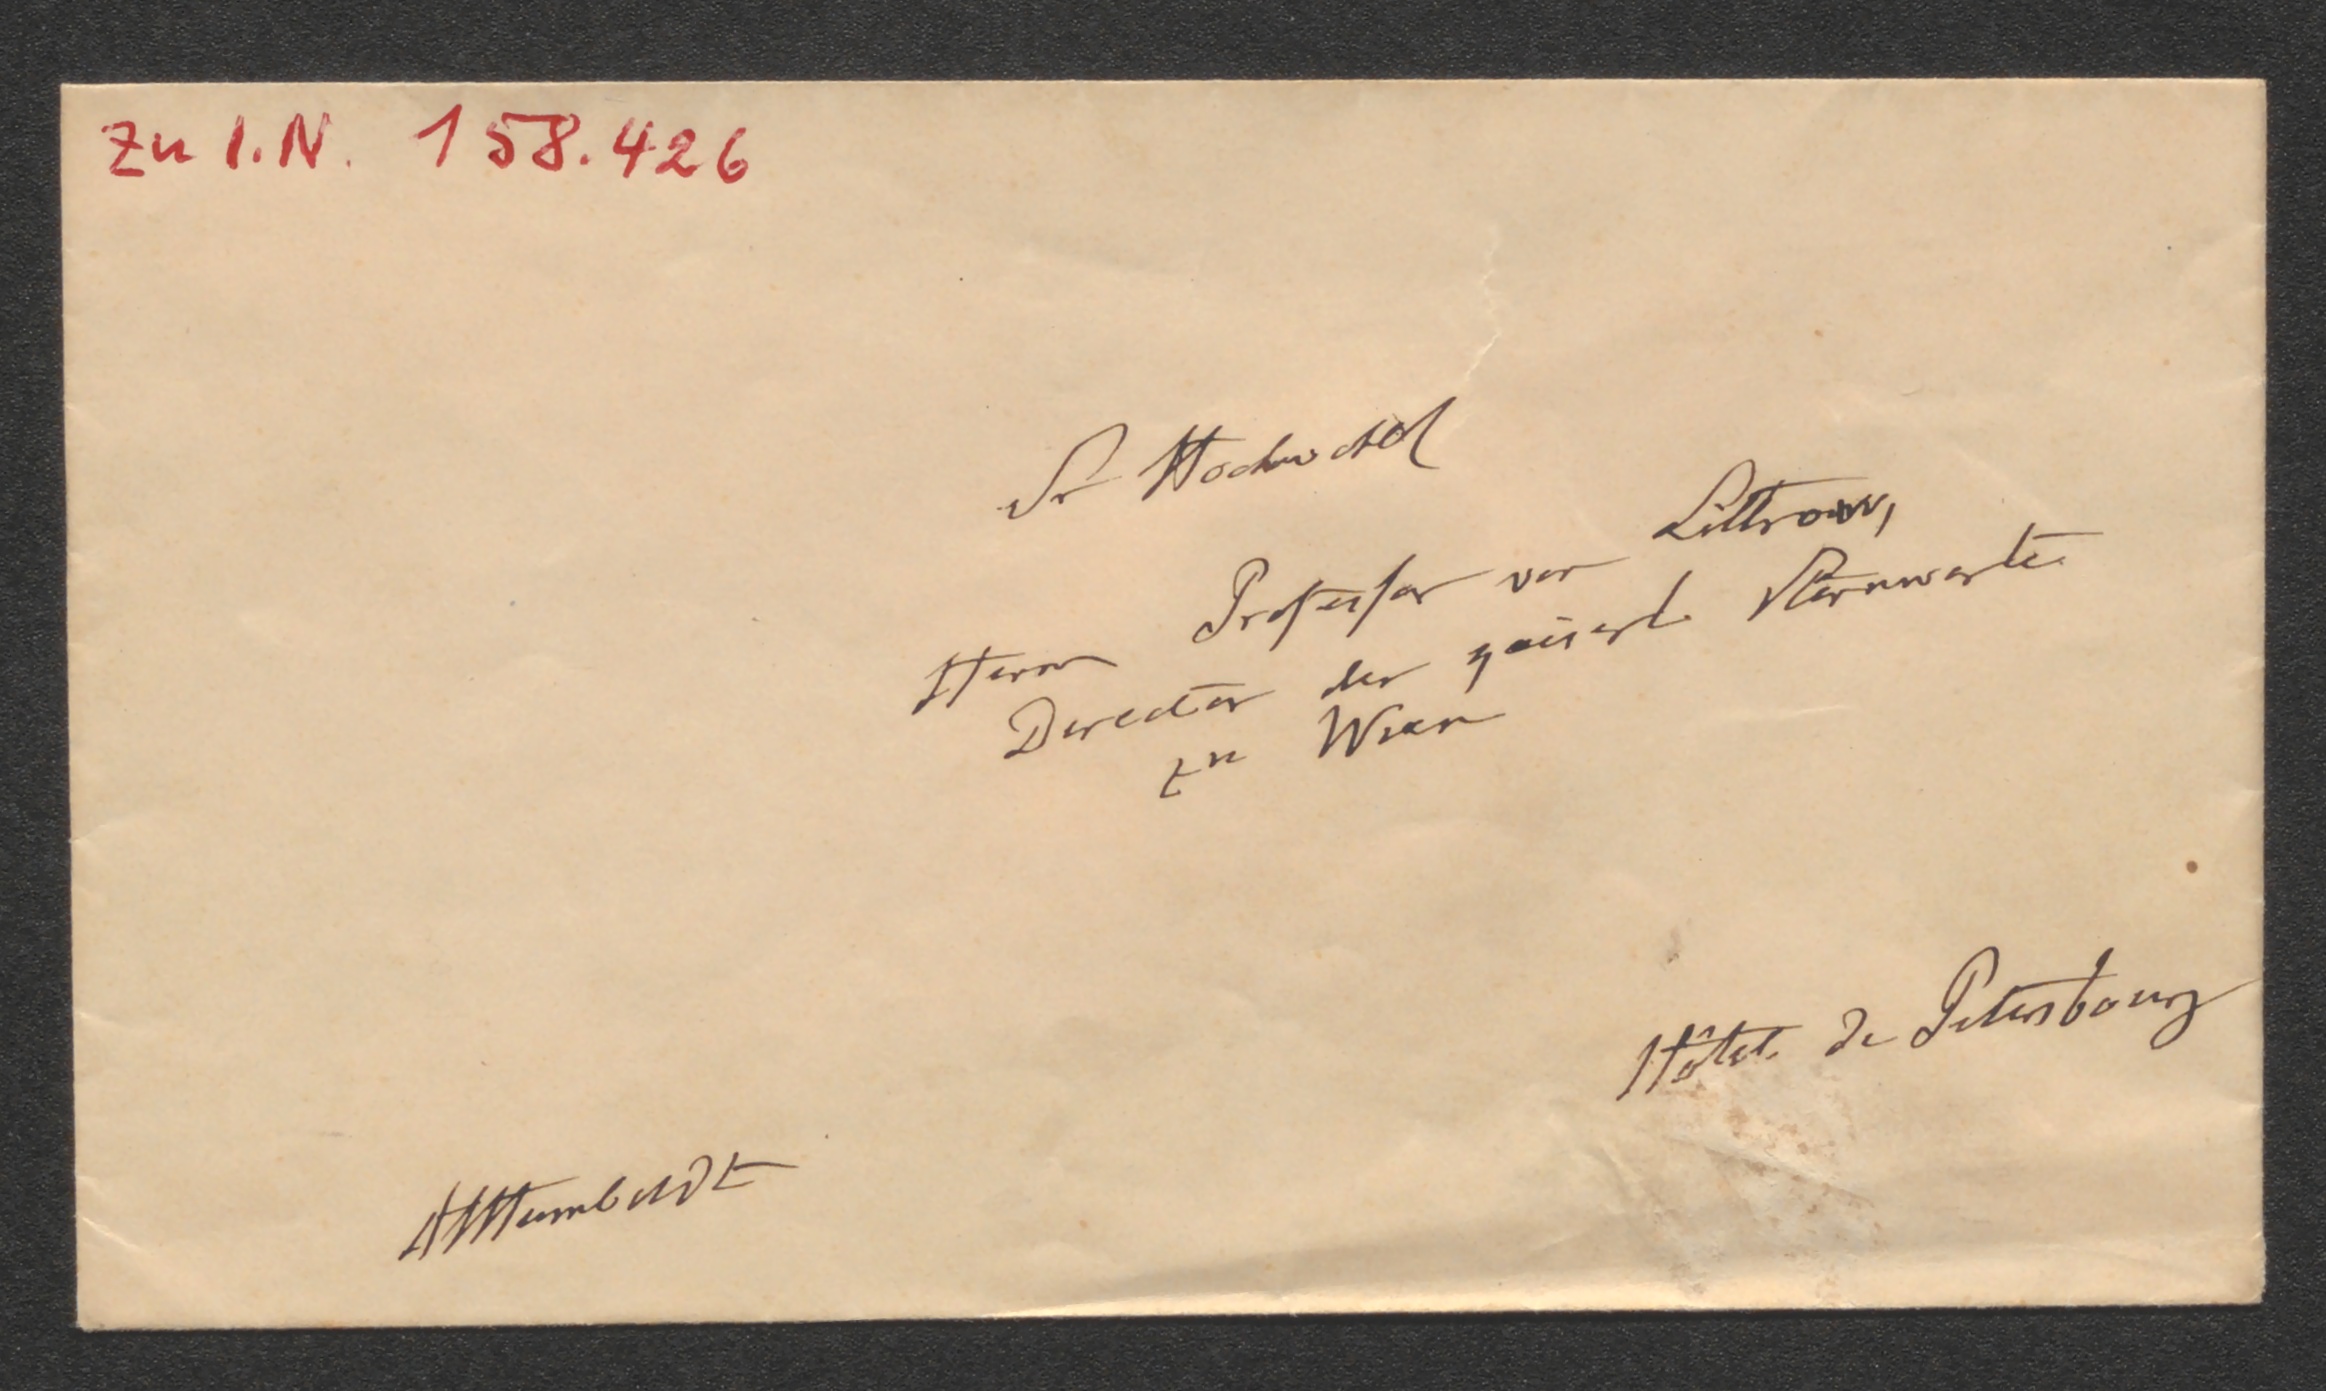 Zu I.N. 158.426
Sr Hochwohl
Herrn Professor von Littrow,
Director der kaiserl. Sternwarte
zu Wien
Hôtel de Petersbourg
AHumboldt